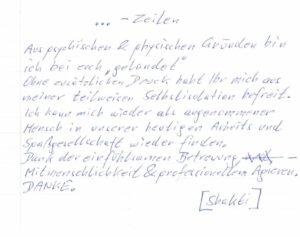 ... - Zeilen
Aus psychischen & physischen Gründen bin
ich bei euch „gelandet"
Ohne zusätzlichen Druck habt Ihr mich aus
meiner teilweisen Selbstisolation befreit.
Ich kann mich wieder als angenommener
Mensch in unserer heutigen Arbeits und
Spaßgesellschaft wieder finden.
Dank der einfühlsamen Betreuung,
Mitmenschlichkeit & professionellem Agieren.
DANKE.
[Shakti]